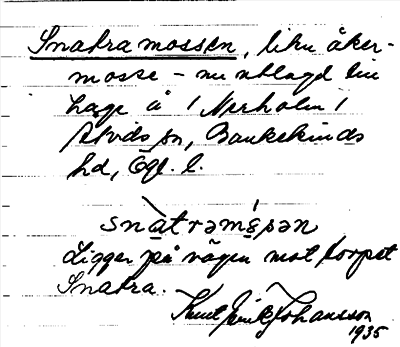 Snatramossen, liten åker-
mosse – nu utlagd till
hage å / Narholm /
Åtvids sn, Bankekinds
hd, Ögl. l.
snàtrəmɷ́sən
Ligger på vägen mot torpet
Snatra.
Knut Erik Johansson
1935